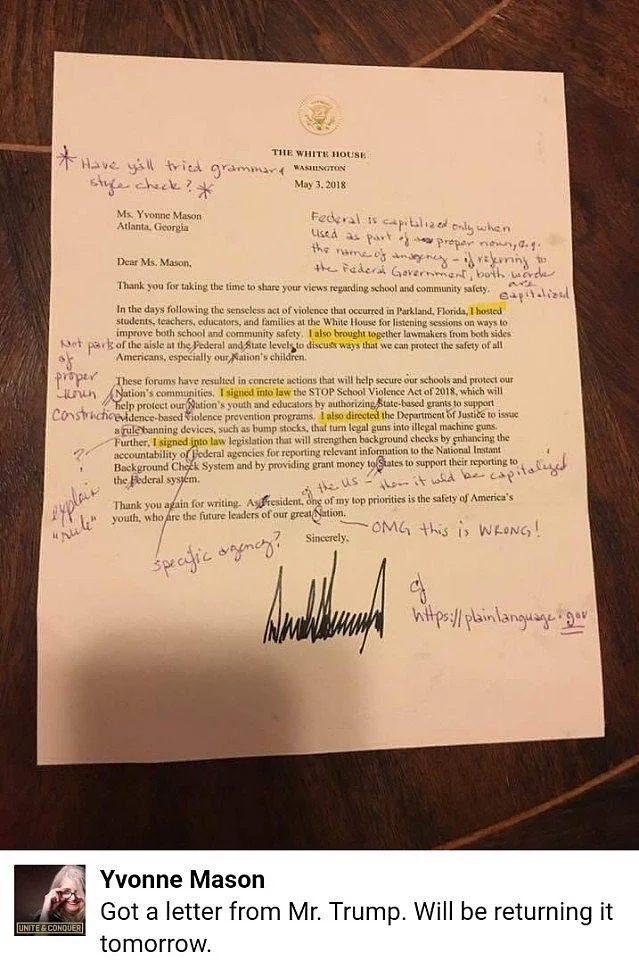 THE WHITE HOUSE
WASHINGTON
May 3, 2018
* Have y'all tried grammar &
style check? *
Ms. Yvonne Mason
Atlanta, Georgia
Federal is capitalized only when
used as part of proper noun, e.g.
the name of an agency - if referring to
the Federal Government, both words
are
capitalized
Dear Ms. Mason,
Thank you for taking the time to share your views regarding school and community safety.
In the days following the senseless act of violence that occurred in Parkland, Florida, I hosted
students, teachers, educators, and families at the White House for listening sessions on ways to
improve both school and community safety. I also brought together lawmakers from both sides
of the aisle at the Federal and State levels to discuss ways that we can protect the safety of all
Americans, especially our Nation's children.
Not part
of
proper
noun
construction
These forums have resulted in concrete actions that will help secure our schools and protect our
Nation's communities. I signed into law the STOP School Violence Act of 2018, which will
help protect our Nation's youth and educators by authorizing State-based grants to support
evidence-based violence prevention programs. I also directed the Department of Justice to issue
a rule banning devices, such as bump stocks, that turn legal guns into illegal machine guns.
Further, I signed into law legislation that will strengthen background checks by enhancing the
accountability of Federal agencies for reporting relevant information to the National Instant
Background Check System and by providing grant money to States to support their reporting to
the Federal system.
?
explain
"rule"
of the US - then it would be capitalized
Thank you again for writing. As President, one of my top priorities is the safety of America's
youth, who are the future leaders of our great Nation.
OMG this is WRONG!
specific agency?
Sincerely,
cf
https://plainlanguage.gov
UNITE & CONQUER
Yvonne Mason
Got a letter from Mr. Trump. Will be returning it
tomorrow.